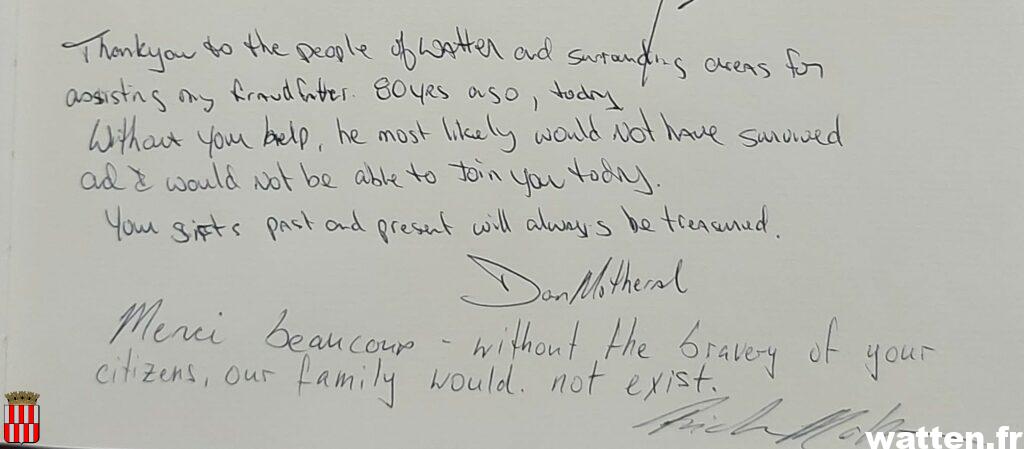 Thankyou to the people of Watten and surrounding areas for
assisting my Grandfather. 80 yrs ago, today
Without your help, he most likely would not have survived
and I would not be able to join you today.
Your gifts past and present will always be treasured.
Dan Motheral
Merci beaucoup - without the bravery of your
citizens, our family would. not exist.
watten.fr